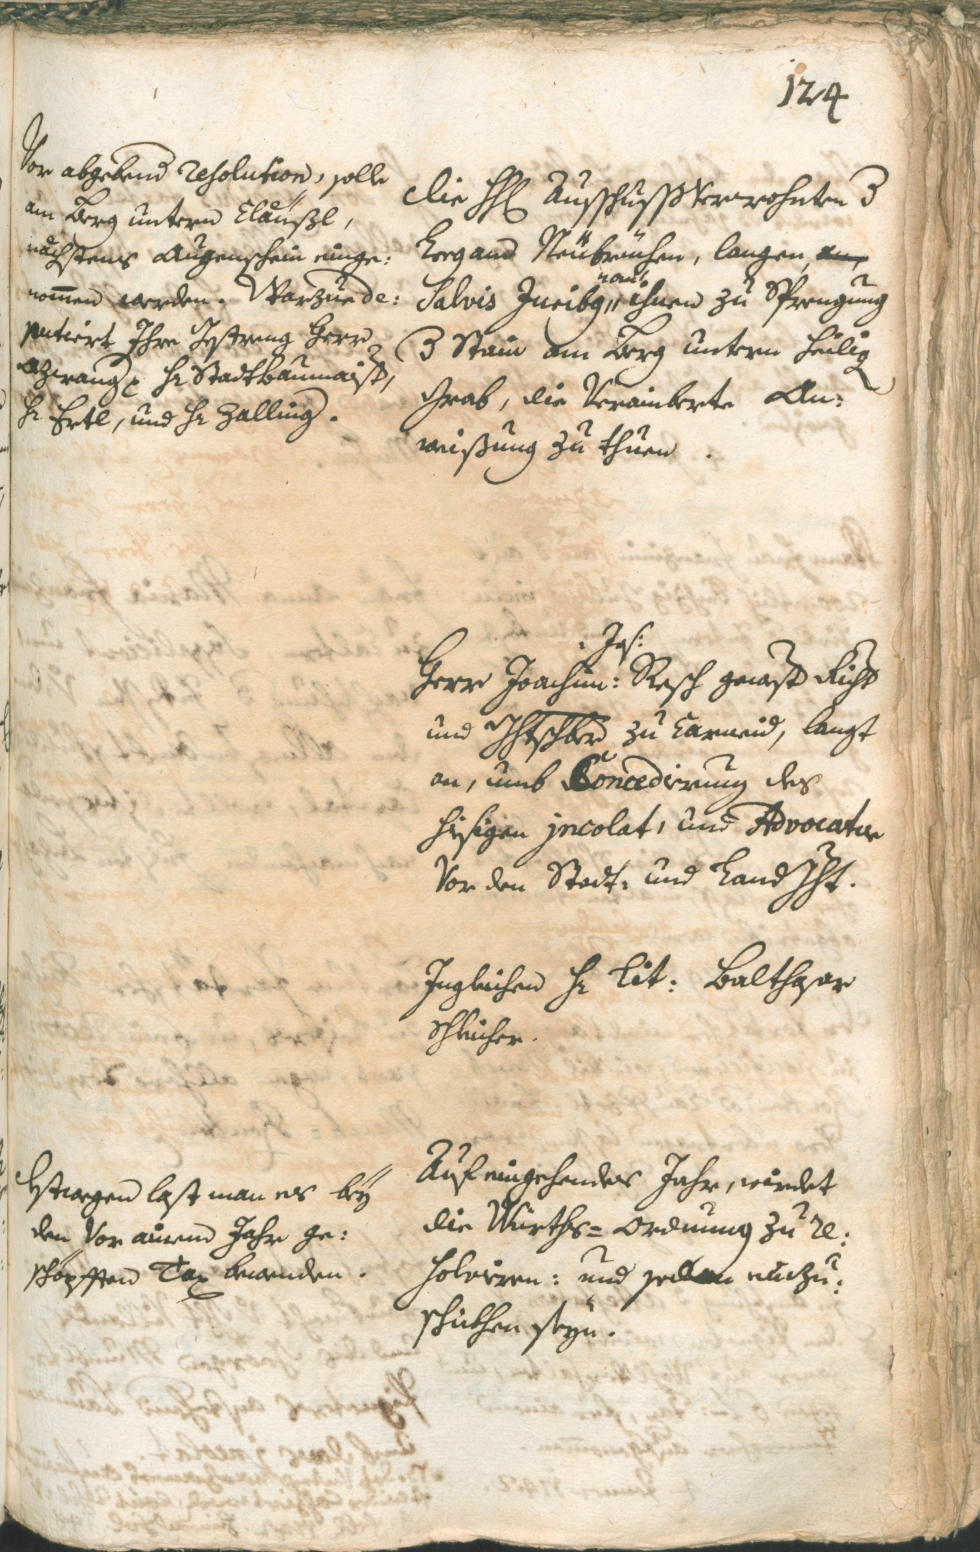 124
Vor abgebend resolution, solle
am Berg untern Claußl,
nächstens Augenschein einge:
nommen werden. Warzue de:
putiert Ihro Gestreng Herr
H: Stadtbaumaist,
H: Ertl, und H: Zalling.
die HH: Ausschuss Verwohnten
Neübrüchen, langen,
Salvis ihnen zu Sprengung
Stain am Berg untern heilig
Grab, die Verainberte An:
weißung zu thuen.
Jos:
Herr Joachim: Resch gewest Richt
und zu Carneid, langt
an, umb Concedirung des
hisigen jncolat, und Advocatur
Vor den Statt: und Land Ght.
Ingleichen H: Lit: Balthasar
Schleicher.
Estwegen last man es beÿ
den Vor ainem Jahr ge:
schöpfften Tax bewenden.
Auf eingehendes Jahr, würdet
die Würths= Ordnung zu re:
solviren: und
seyn.